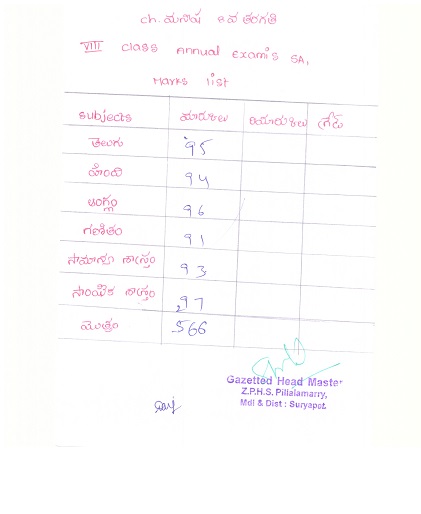 ch. మనీష 8వ తరగతి
VIII class Annual Exam's SA,
Marks list
subjects మార్కులు రిమార్కులు గ్రేడ్
తెలుగు 95
హిందీ 94
ఇంగ్లీషు 96
గణితం 91
సామాన్య శాస్త్రం 93
సాంఘిక శాస్త్రం 97
మొత్తం 566
Gazetted Head Master
Z.P.H.S. Pillalamarry,
Mdl & Dist : Suryapet